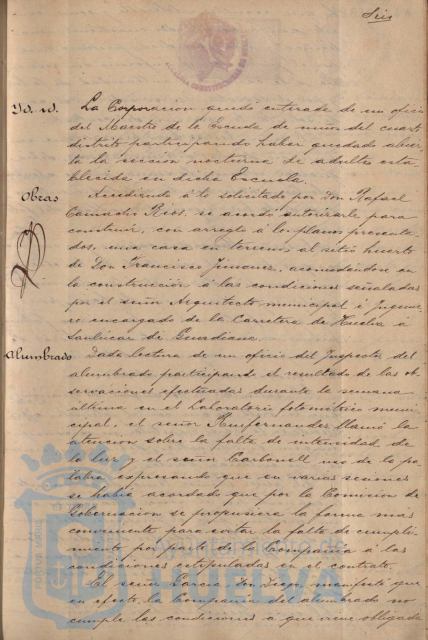 Seis
Yd. id. La Corporacion quedó enterada de un oficio
del Maestro de la Escuela de niños del cuarto
distrito participando haber quedado abier-
ta la seccion nocturna de adultos esta
blecida en dicha Escuela.
Obras Accediendo á lo solicitado por Don Rafael
Camacho Rios, se acordó autorizarle para
construir, con arreglo á los planos presenta-
dos, una casa en terreno al sitio huerto
de Don Francisco Jimenez, acomodándose en
la construccion á las condiciones señaladas
por el señor Arquitecto municipal é Ingenie-
ro encargado de la Carretera de Huelva á
Sanlúcar de Guadiana.
Alumbrado Dada lectura de un oficio del Inspector del
alumbrado participando el resultado de las ob-
servaciones efectuadas durante la semana
última en el Laboratorio fotométrico muni-
cipal, el señor llamó la
atencion sobre la falta de intensidad de
la luz y el señor Carbonell usó de la pa-
labra expresando que en varias sesiones
se habia acordado que por la Comision de
Gobernacion se propusiera la forma mas
conveniente para evitar la falta de cumpli-
miento por parte de la Compañia á las
condiciones estipuladas en el contrato.
El señor Garcia Don Diego manifestó que
en efecto, la Compañia del alumbrado no
cumple las condiciones á que viene obligada
Ayuntamiento de
HUELVA